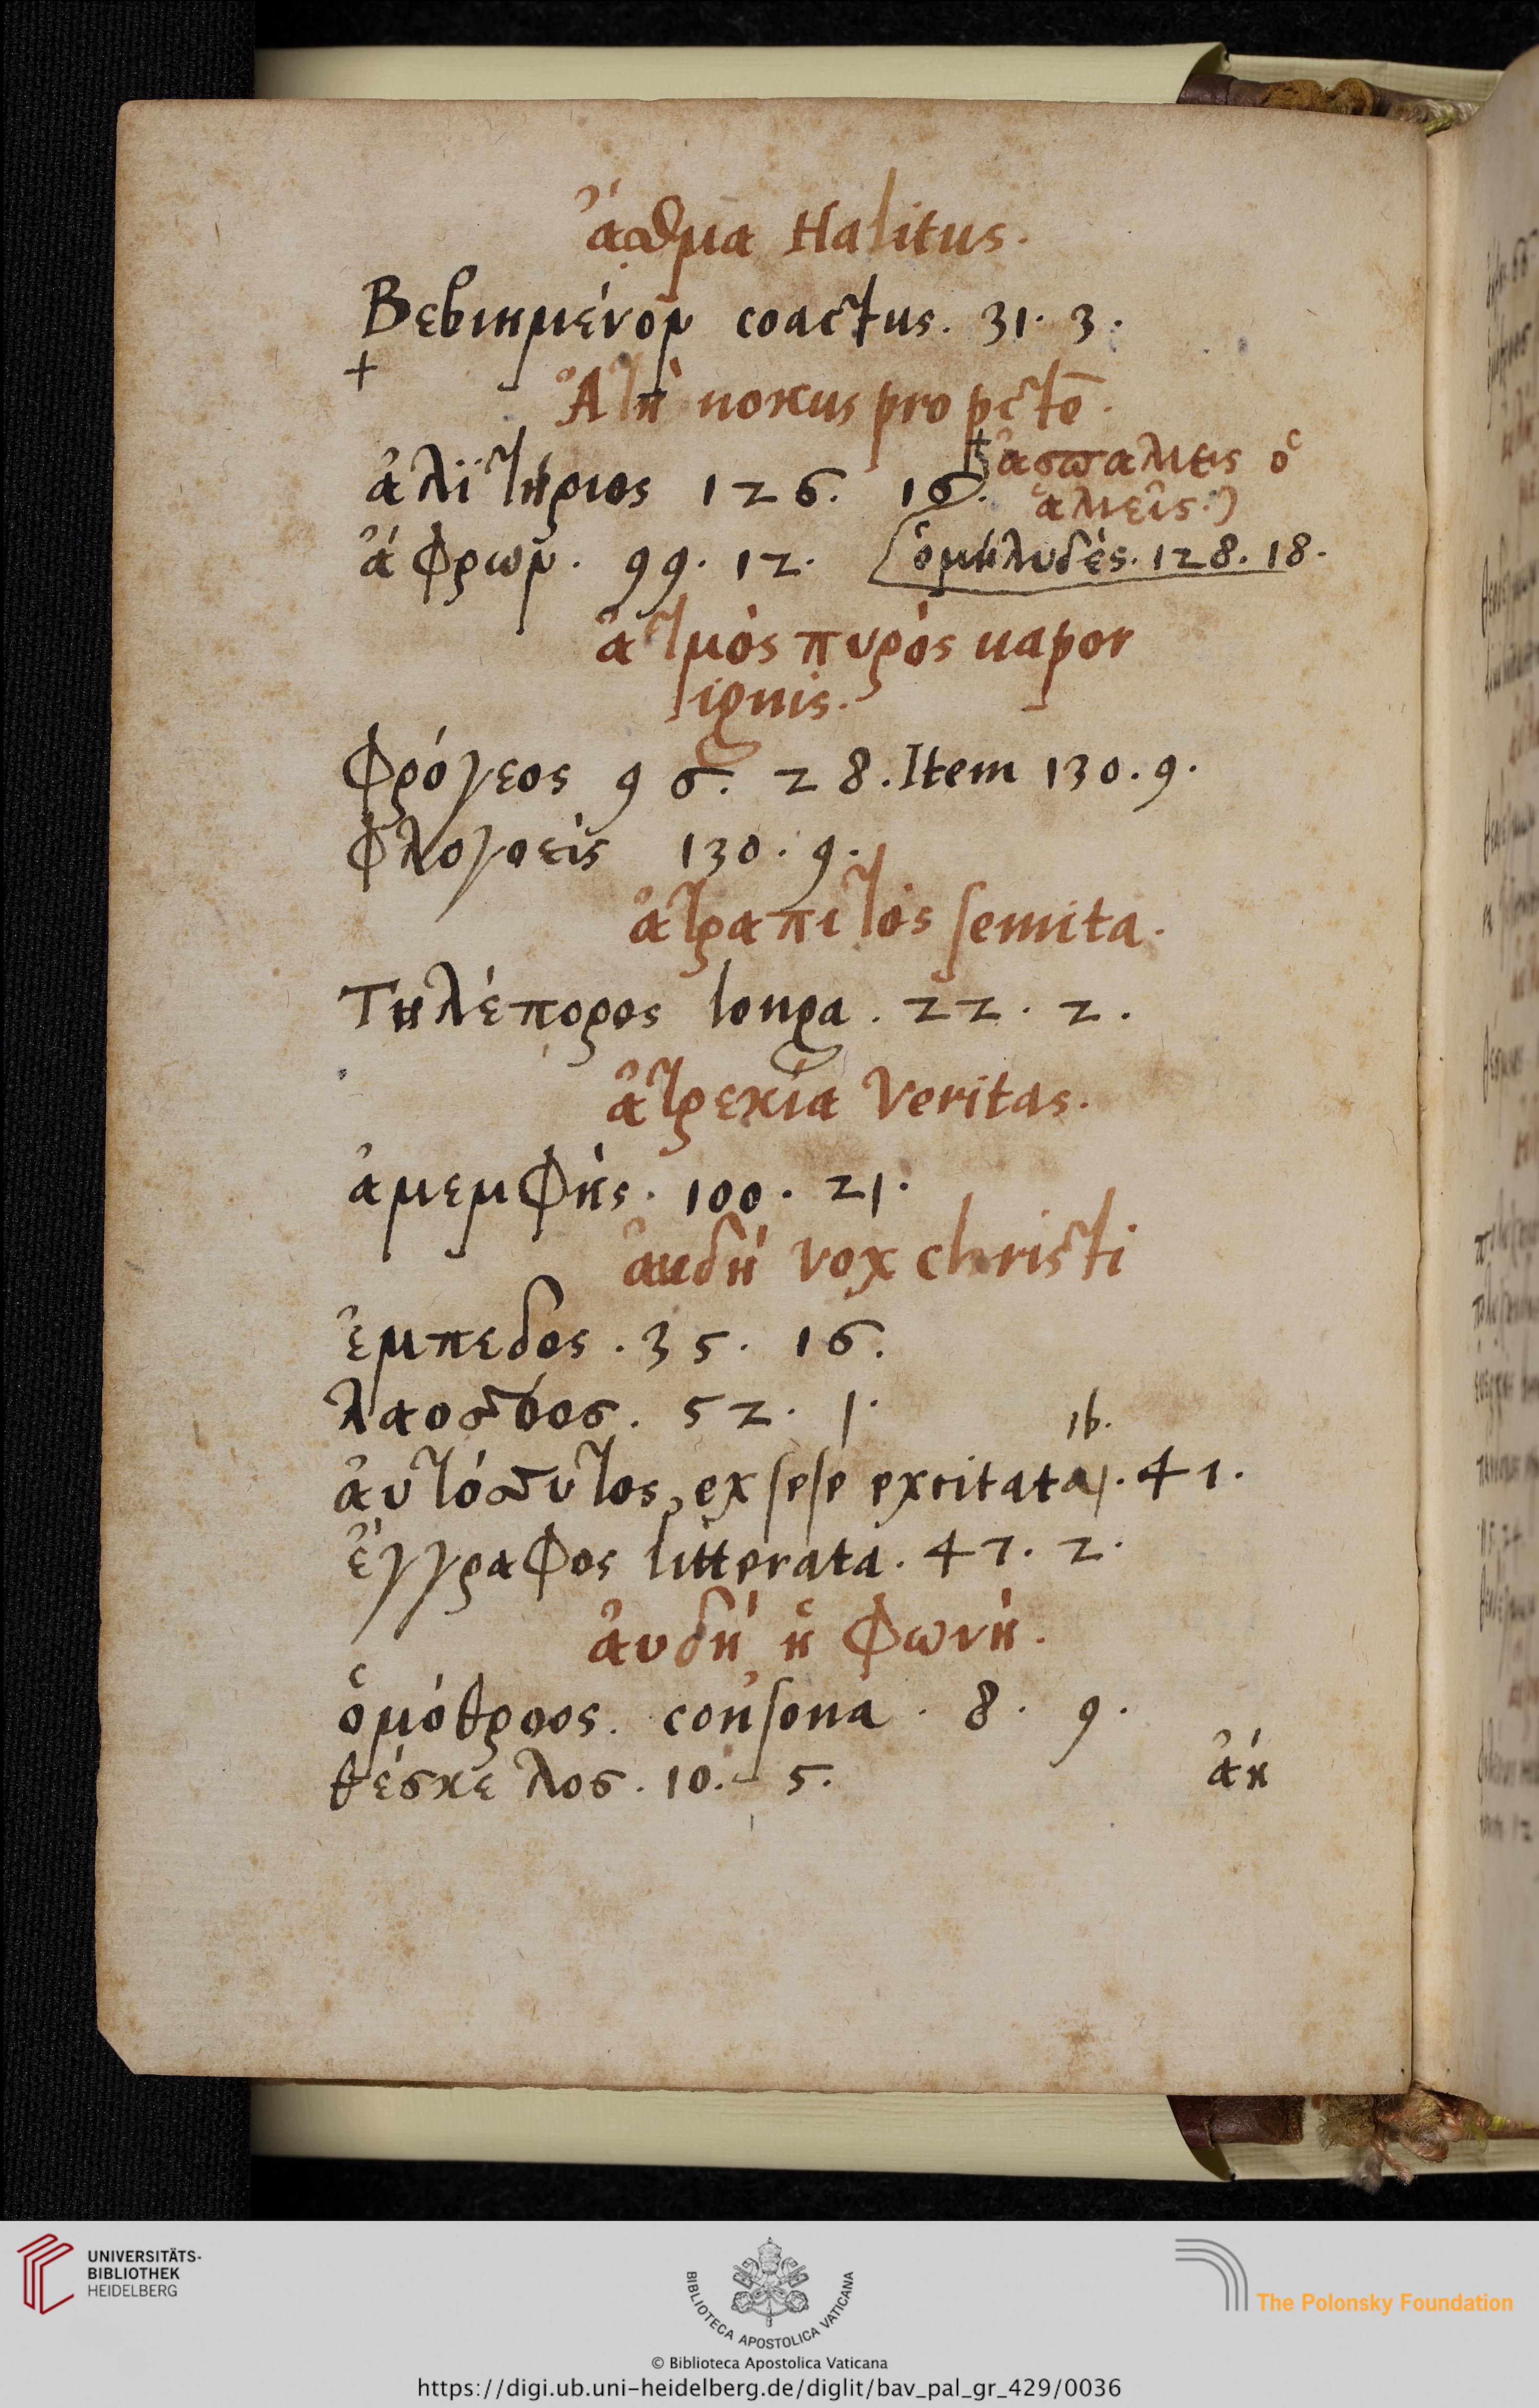 ἄσθμα Halitus.
Βεβιημένον coactus. 31. 3.
+
Ἄτη noxus pro pcto.
ἀλιτήριος 126. 16. + ἀσπαλιεις ὁ
ἁλιεῖς.)
ἄφρων. 99. 12. ὁμήλυδές. 128. 18.
ἀτμὸς πυρός uapor
ignis.
Φρόγεος 96. 28. Item 130. 9.
Φλογοεὶς 130. 9.
ἀτραπιτὸς semita.
Τηλέπορος longa. 22. 2.
ἀτρεκία Veritas.
ἀμεμφής. 100. 21.
ἀυδή Vox christi
ἔμπεδος. 35. 16.
λαοσσόοσ. 52. 1.
ib.
ἀυτόσυτος, ex sese excitata. 41.
ἔγγραφος litterata. 47. 2.
ἀυδή ἡ Φωνή.
ὁμόθροος. consona. 8. 9.
θέσκελοσ. 10. 5.
ἀή
UNIVERSITÄTS-
BIBLIOTHEK
HEIDELBERG
BIBLIOTECA APOSTOLICA VATICANA
The Polonsky Foundation
© Biblioteca Apostolica Vaticana
https://digi.ub.uni-heidelberg.de/diglit/bav_pal_gr_429/0036